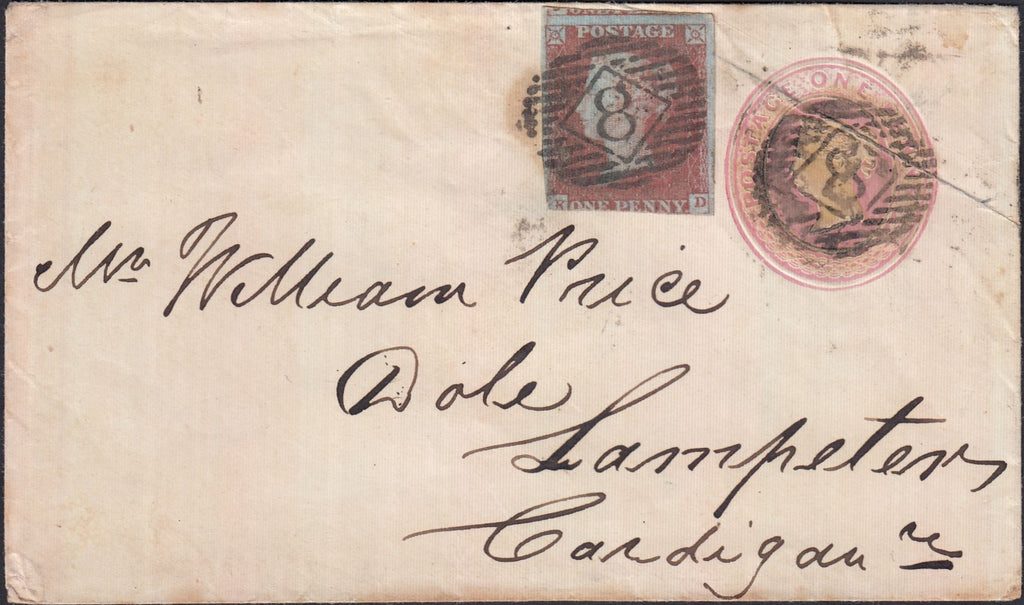 POSTAGE
8
K D
ONE PENNY
POSTAGE ONE
8
Mr William Price
Dole
Lampeter
Cardigan re